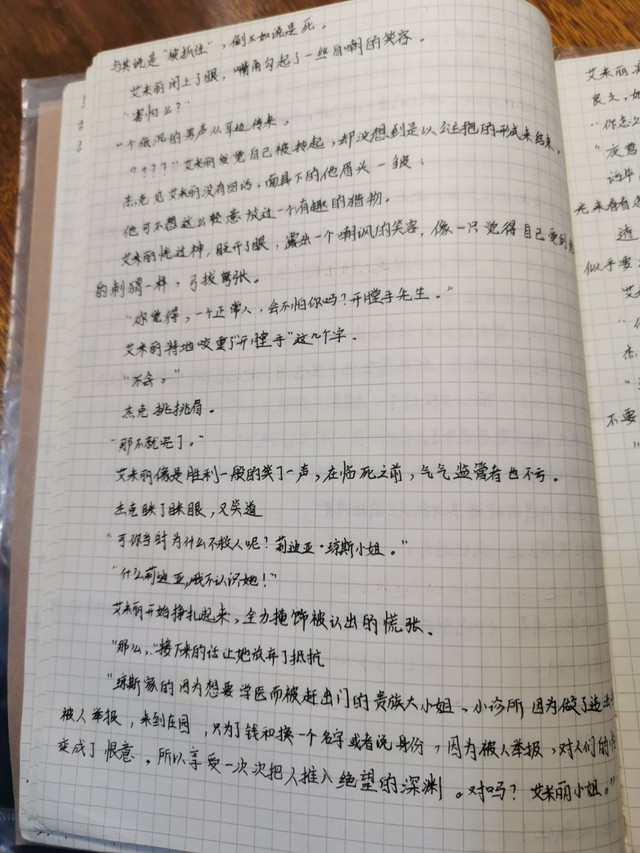 与其说是“被抓住”,倒不如说是死。
艾米丽闭上了眼,嘴角勾起了一丝自嘲的笑容。
“害怕么?”
一个低沉的男声从耳边传来。
“???”艾米丽感觉自己被抱起,却没想到是以公主抱的形式来结束,
杰克见艾米丽没有回吗,面具下的他眉头一皱,
他可不想这么轻意放过一个有趣的猎物。
艾米丽恍过神,睁开了眼,露出一个嘲讽的笑容,像一只觉得自己受到
的刺猬一样,弓拔弩张。
“你觉得,一个正常人,会不怕你吗?开膛手先生。”
艾米丽特地咬重了“开膛手”这几个字.
“不会。”
杰克挑挑眉。
“那不就完了。”
艾米丽像是胜利一般的笑了一声,在临死之前,气气监管者也不亏。
杰克眯了眯眼,又笑道
“可你当时为什么不救人呢?莉迪亚·琼斯小姐。”
“什么莉迪亚,我不认识她!”
艾米丽开始挣扎起来,全力掩饰被认出的慌张、
“那么,”接下来的话让她放弃了抵抗
“琼斯家的因为想要学医而被赶出门的贵族大小姐、小诊所因为做了违法
被人举报,来到庄园,只为了钱和换一个名字或者说身份,因为被人举报,对人们的
变成了恨意。所以享受一次次把人推入绝望的深渊。对吗?艾米丽小姐。”
艾米丽
良久,她
“你怎么
“夜莺
话毕
先来看看
似乎要
艾米
杰
不要